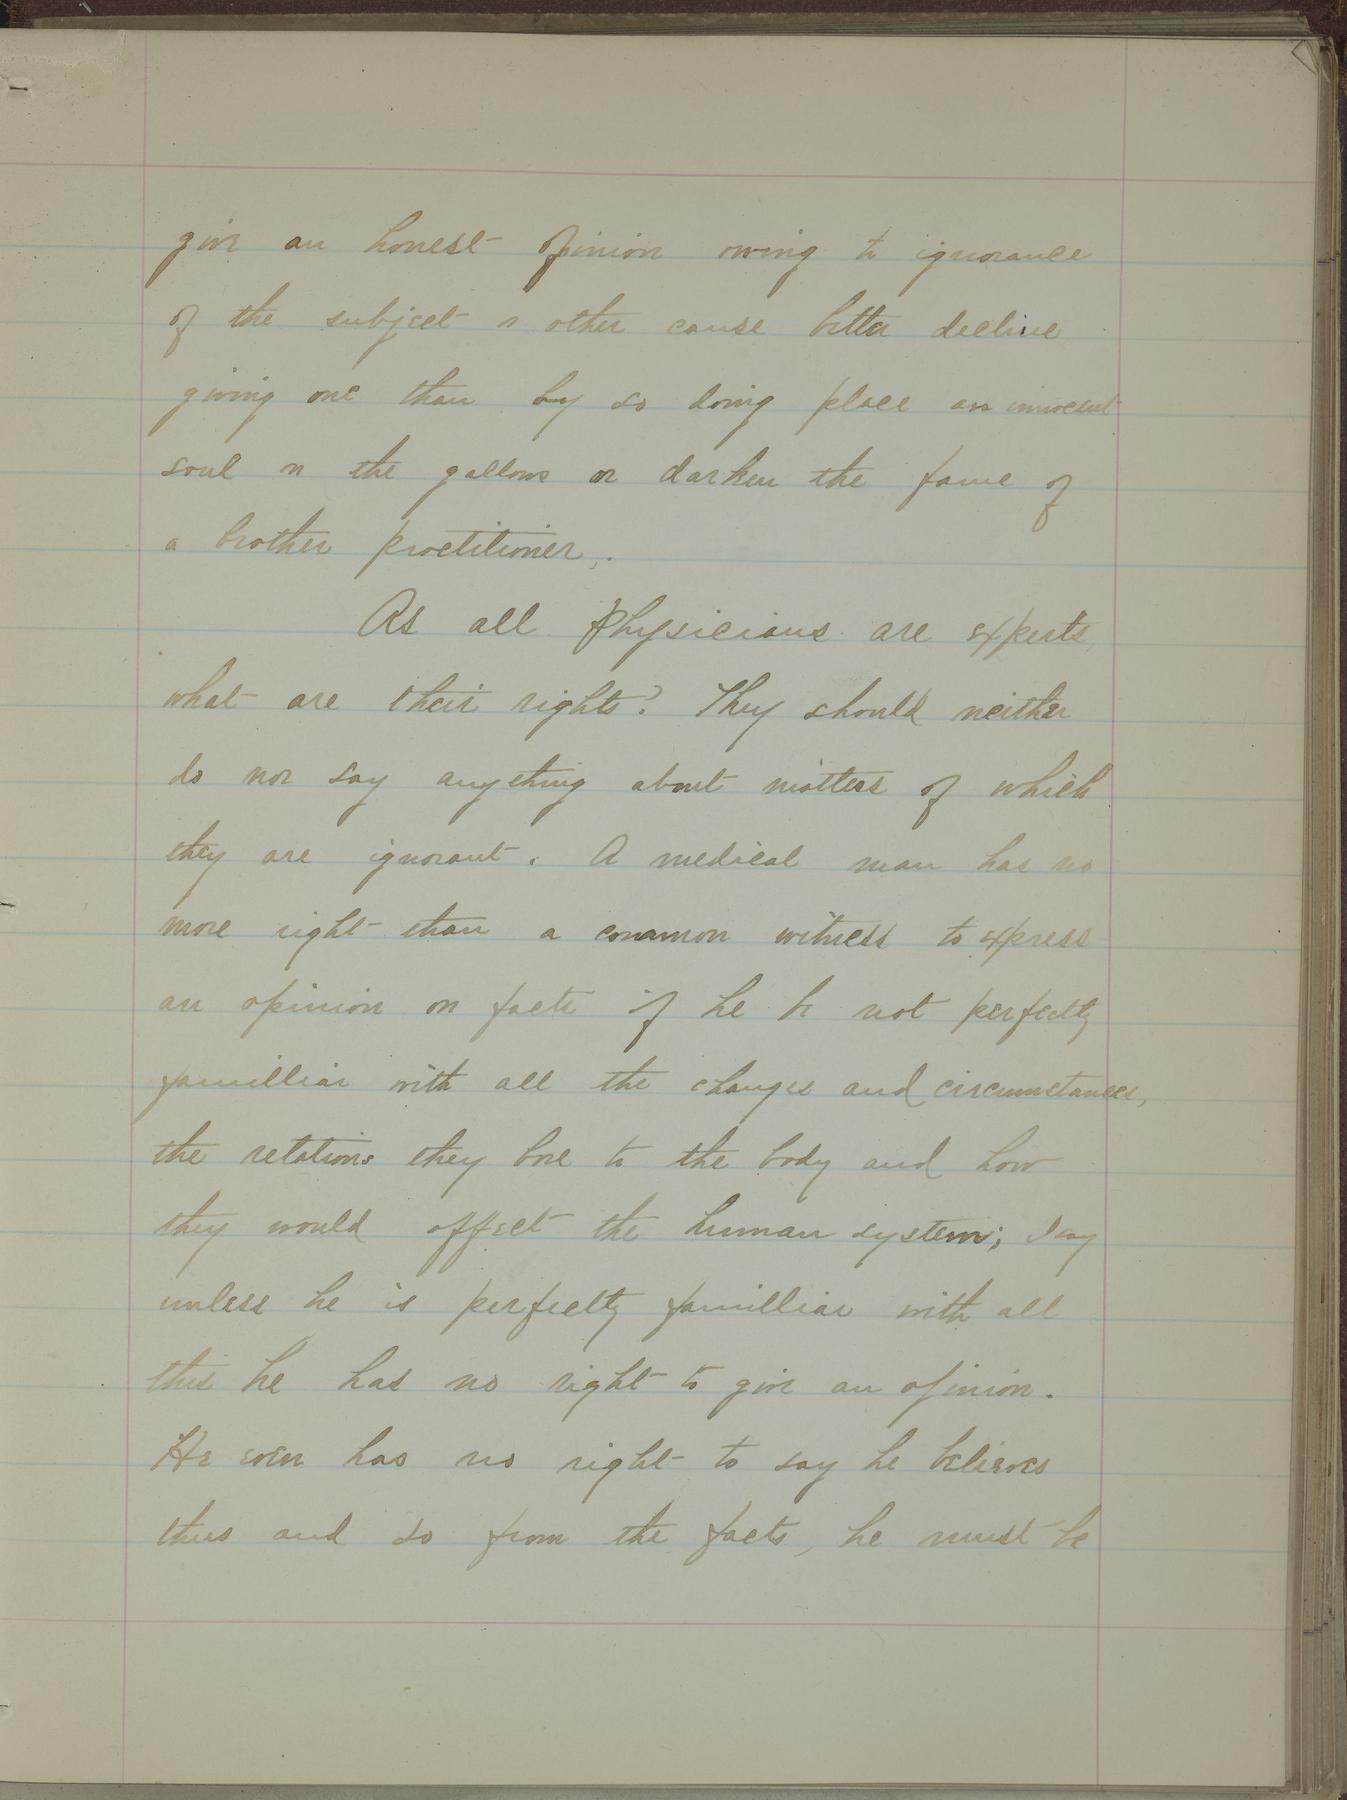 give an honest opinion owing to ignorance
of the subject or other cause better decline
giving one than by so doing place an innocent
soul on the gallows or darken the fame of
a brother practitioner.
As all Physicians are experts,
what are their rights? They should neither
do nor say anything about matters of which
they are ignorant. A medical man has no
more right than a common witness to express
an opinion on facts if he be not perfectly
familliar with all the changes and circumstances,
the relations they bore to the body and how
they would affect the human system; I say
unless he is perfectly familliar with all
this he has no right to give an opinion.
He even has no right to say he believes
thus and so from the facts, he must be